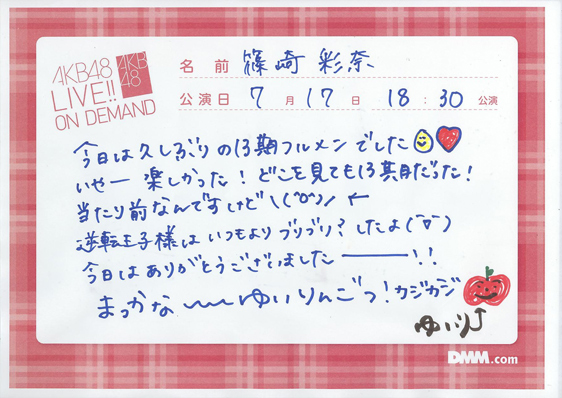 AKB48
LIVE!!
ON DEMAND
AKB
48
名前 篠崎 彩奈
公演日 7月17日 18:30公演
今日は久しぶりの13期フルメンでした
いやー 楽しかった!どこを見ても13期だった!
当たり前なんですけど\(^o^)/ ←
逆転王子様はいつもよりブリブリ?したよ(^▽^)
今日はありがとうございました――!!
まっかな〜〜ゆいりんごっ!カジカジ
ゆいり↑
DMM.com